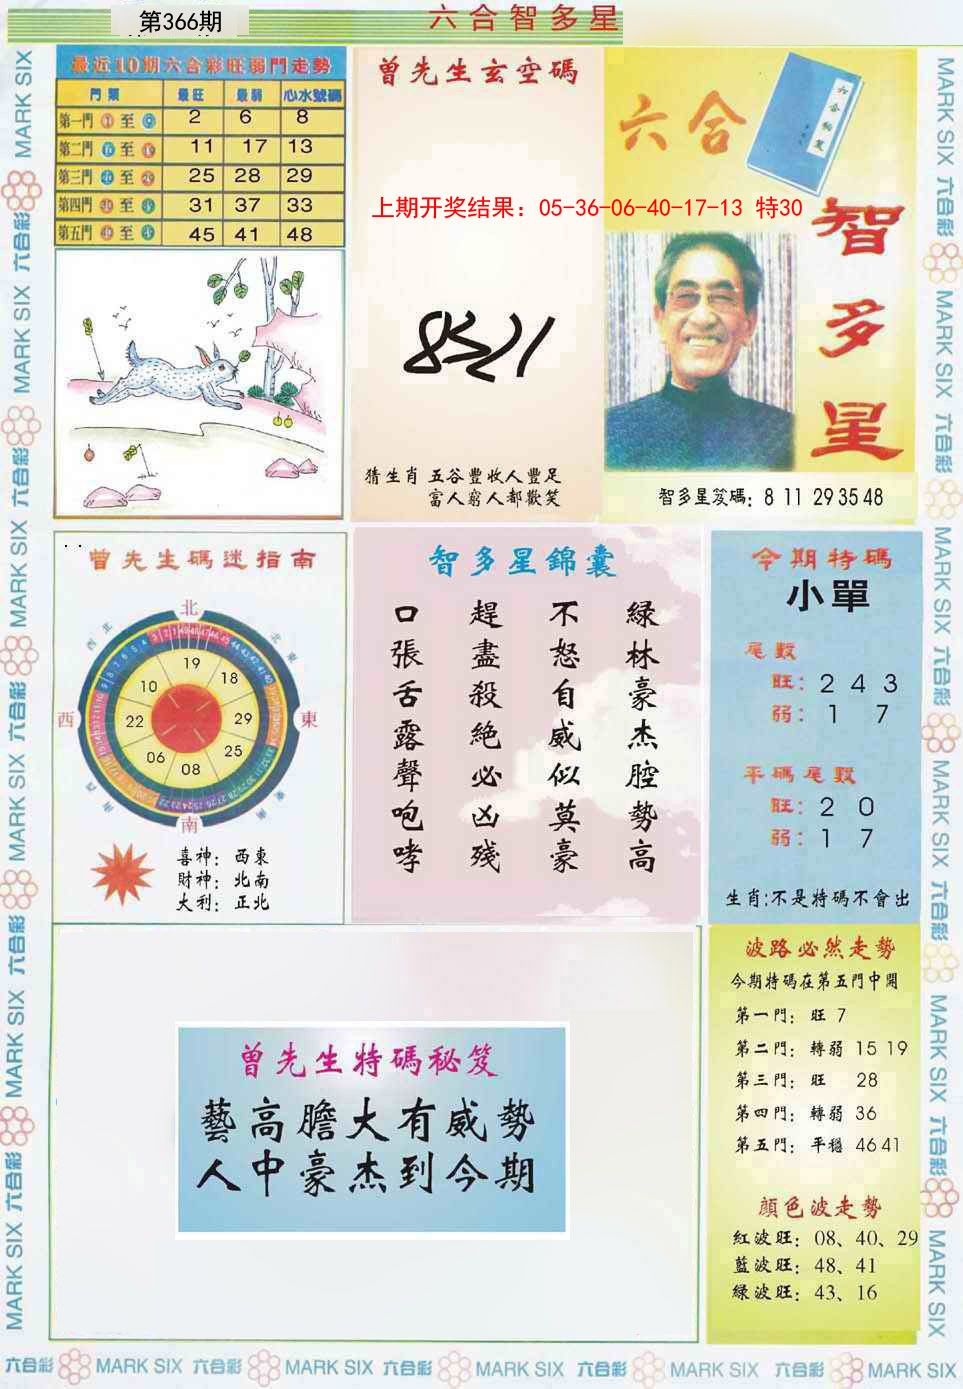 第366期
六合智多星
最近10期六合彩旺弱門走勢
門類 最旺 最弱 心水號碼
第一門 至 2 6 8
第二門 至 11 17 13
第三門 至 25 28 29
第四門 至 31 37 33
第五門 至 45 41 48
曾先生玄空碼
上期开奖结果：05-36-06-40-17-13 特30
猜生肖 五谷豐收人豐足
富人窮人都歡笑
六合
智多星
智多星笈碼：8 11 29 35 48
曾先生碼迷指南
北
西
東
南
19
18
29
25
08
06
22
10
喜神：西東
財神：北南
大利：正北
智多星錦囊
綠林豪杰腔勢高
不怒自威似莫豪
趕盡殺絕必凶殘
口張舌露聲咆哮
今期特碼
小單
尾數
旺：2 4 3
弱：1 7
平碼尾數
旺：2 0
弱：1 7
生肖:不是特碼不會出
曾先生特碼秘笈
藝高膽大有威勢
人中豪杰到今期
波路必然走勢
今期特碼在第五門中開
第一門：旺 7
第二門：轉弱 15 19
第三門：旺 28
第四門：轉弱 36
第五門：平穩 46 41
顏色波走勢
紅波旺：08、40、29
藍波旺：48、41
綠波旺：43、16
六合彩 MARK SIX 六合彩 MARK SIX 六合彩 MARK SIX 六合彩 MARK SIX 六合彩 MARK SIX